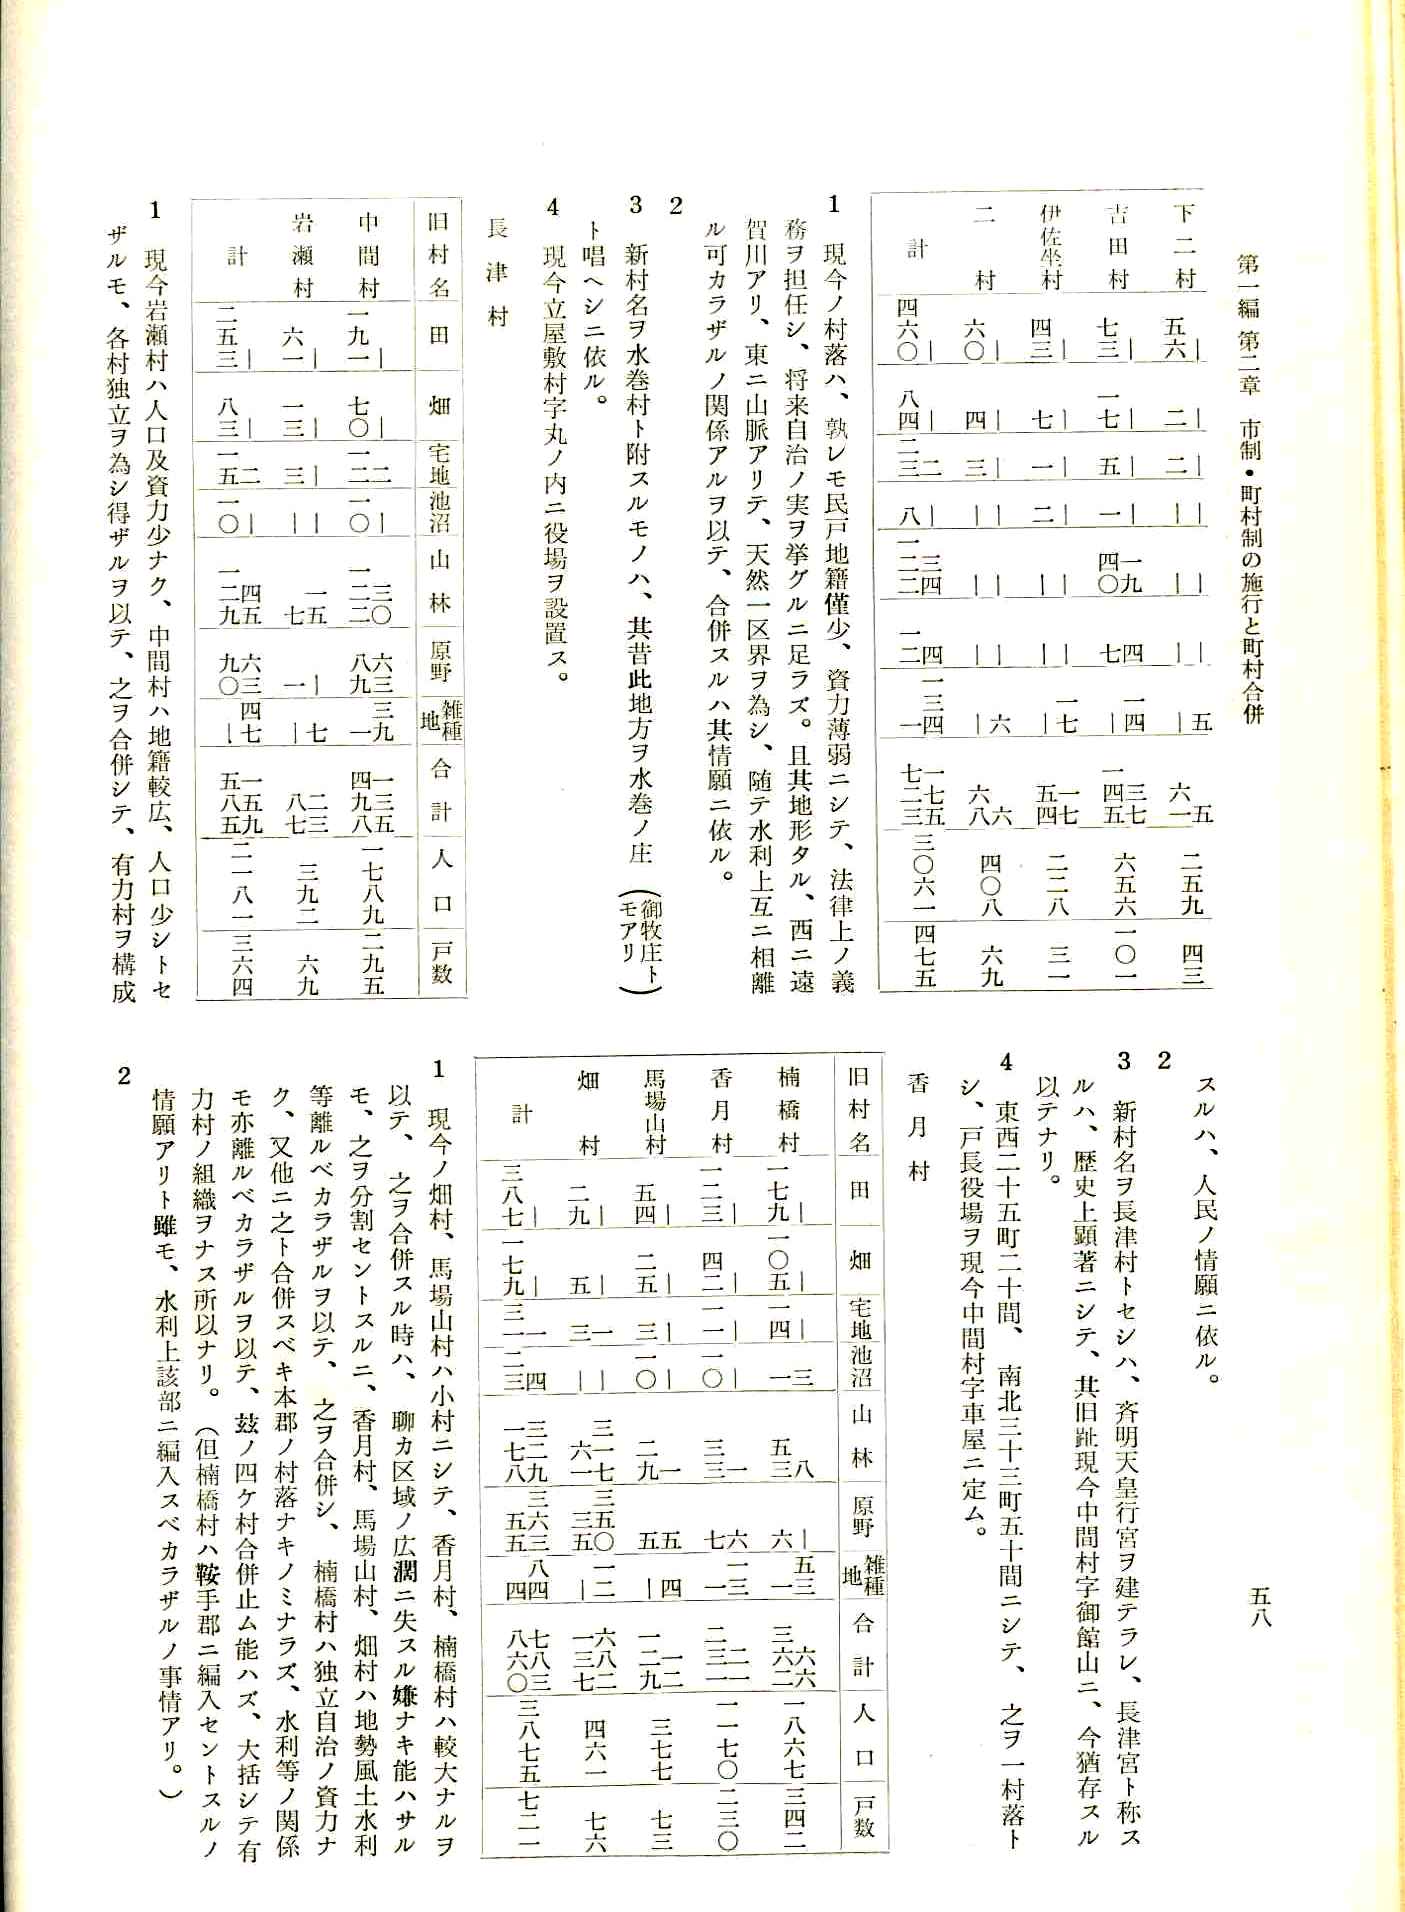 第一編 第二章　市制・町村制の施行と町村合併
五八
下二村　｜五六　｜二　｜二　｜｜　｜｜　｜｜　五｜　五 六一　二五九　四三
吉田村　｜七三　｜一七　｜五　｜一　一九 四〇　四 七　一四 一　三七 一四五　六五六　一〇一
伊佐坐村　｜四三　｜七　｜一　｜二　｜｜　｜｜　一七 一　一七 五四　二二八　三一
二村　｜六〇　｜四　｜三　｜｜　｜｜　｜｜　六｜　六 六八　四〇八　六九
計　｜四六〇　｜八四　二 二三　｜八　三四 一二二　四 一二　一三四 一　一七五 七二三　三〇六一　四七五
1　現今ノ村落ハ、孰レモ民戸地籍僅少、資力薄弱ニシテ、法律上ノ義
務ヲ担任シ、将来自治ノ実ヲ挙グルニ足ラズ。且其地形タル、西ニ遠
賀川アリ、東ニ山脈アリテ、天然一区界ヲ為シ、随テ水利上互ニ相離
ル可カラザルノ関係アルヲ以テ、合併スルハ其情願ニ依ル。
2
3　新村名ヲ水巻村ト附スルモノハ、其昔此地方ヲ水巻ノ庄（御牧庄トモアリ）
ト唱ヘシニ依ル。
4　現今立屋敷村字丸ノ内ニ役場ヲ設置ス。
長津村
旧村名　田　畑　宅地　池沼　山林　原野　雑種地　合計　人口　戸数
中間村　｜一九一　｜七〇　二 一二　｜一〇　三〇 一二二　六三 八九　三九 一　一三五 四九八　一七八九　二九五
岩瀬村　｜六一　｜一三　｜三　｜｜　一五 七　｜一　七｜　二三 八七　三九二　六九
計　｜二五三　｜八三　二 一五　｜一〇　四五 一二九　六三 九〇　四七｜　一五九 五八五　二一八一　三六四
1　現今岩瀬村ハ人口及資力少ナク、中間村ハ地籍較広、人口少シトセ
ザルモ、各村独立ヲ為シ得ザルヲ以テ、之ヲ合併シテ、有力村ヲ構成
スルハ、人民ノ情願ニ依ル。
2
3　新村名ヲ長津村トセシハ、斉明天皇行宮ヲ建テラレ、長津宮ト称ス
ルハ、歴史上顕著ニシテ、其旧趾現今中間村字御館山ニ、今猶存スル
以テナリ。
4　東西二十五町二十間、南北三十三町五十間ニシテ、之ヲ一村落ト
シ、戸長役場ヲ現今中間村字車屋ニ定ム。
香月村
旧村名　田　畑　宅地　池沼　山林　原野　雑種地　合計　人口　戸数
楠橋村　｜一七九　｜一〇五　｜一四　三 一　八 五三　｜六　五三 一　六六 三六二　一八六七　三四二
香月村　｜一二三　｜四二　｜一一　｜一〇　一 三三　六 七　一三 一　二一 二三一　一一七〇　二三〇
馬場山村　｜五四　｜二五　｜三　｜一〇　一 二九　五 五　四｜　一二 一二九　三七七　七三
畑村　｜二九　｜五　一 三　｜｜　三一七 六一　三五〇 三五　一二｜　六八二 一三七　四六一　七六
計　｜三八七　｜一七九　一 三一　四 二三　三二九 一七八　三六三 五五　八四 四　七八三 八六〇　三八七五　七二一
1　現今ノ畑村、馬場山村ハ小村ニシテ、香月村、楠橋村ハ較大ナルヲ
以テ、之ヲ合併スル時ハ、聊カ区域ノ広濶ニ失スル嫌ナキ能ハサル
モ、之ヲ分割セントスルニ、香月村、馬場山村、畑村ハ地勢風土水利
等離ルベカラザルヲ以テ、之ヲ合併シ、楠橋村ハ独立自治ノ資力ナ
ク、又他ニ之ト合併スベキ本郡ノ村落ナキノミナラズ、水利等ノ関係
モ亦離ルベカラザルヲ以テ、玆ノ四ケ村合併止ム能ハズ、大括シテ有
力村ノ組織ヲナス所以ナリ。（但楠橋村ハ鞍手郡ニ編入セントスルノ
情願アリト雖モ、水利上該部ニ編入スベカラザルノ事情アリ。）
2